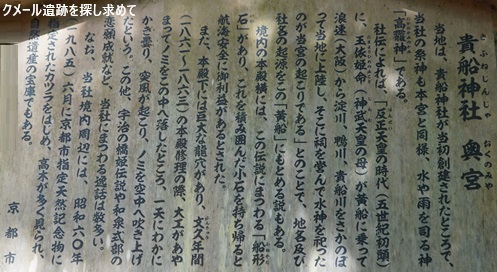 クメール遺跡を探し求めて
きふねじんじゃ おくのみや
貴船神社 奥宮
当地は、貴船神社が当初創建されたところで、
当社の祭神も本宮と同様、水や雨を司る神
「高龗神」である。
社伝によれば、「反正天皇の時代（五世紀初頭）
に、玉依姫命（神武天皇の母）が黄船に乗って
浪速（大阪）から淀川、鴨川、貴船川をさかのぼ
って当地に上陸し、そこに祠を営んで水神を祀った
のが当宮の起こりである」とのことで、地名及び
社名の起源をこの「黄船」にもとめる説もある。
境内の本殿横には、この伝説にまつわる「船形
石」があり、これを積み囲んだ小石を持ち帰ると
航海安全に御利益があるとされた。
また、本殿下には巨大な龍穴があり、文久年間
（一八六一～一八六三）の本殿修理の際、大工があや
まってノミをこの中へ落したところ、一天にわかに
かき曇り、突風が起こり、ノミを空中へ吹き上げ
たという。この他、宇治の橋姫伝説や和泉式部の
悲願成就など、当社にまつわる逸話は数多い。
なお、当社境内周辺には、昭和六〇年
（一九八五）六月に京都市指定天然記念物に
指定されたカツラをはじめ、高木が多く見られ、
自然遺産の宝庫でもある。
京都市